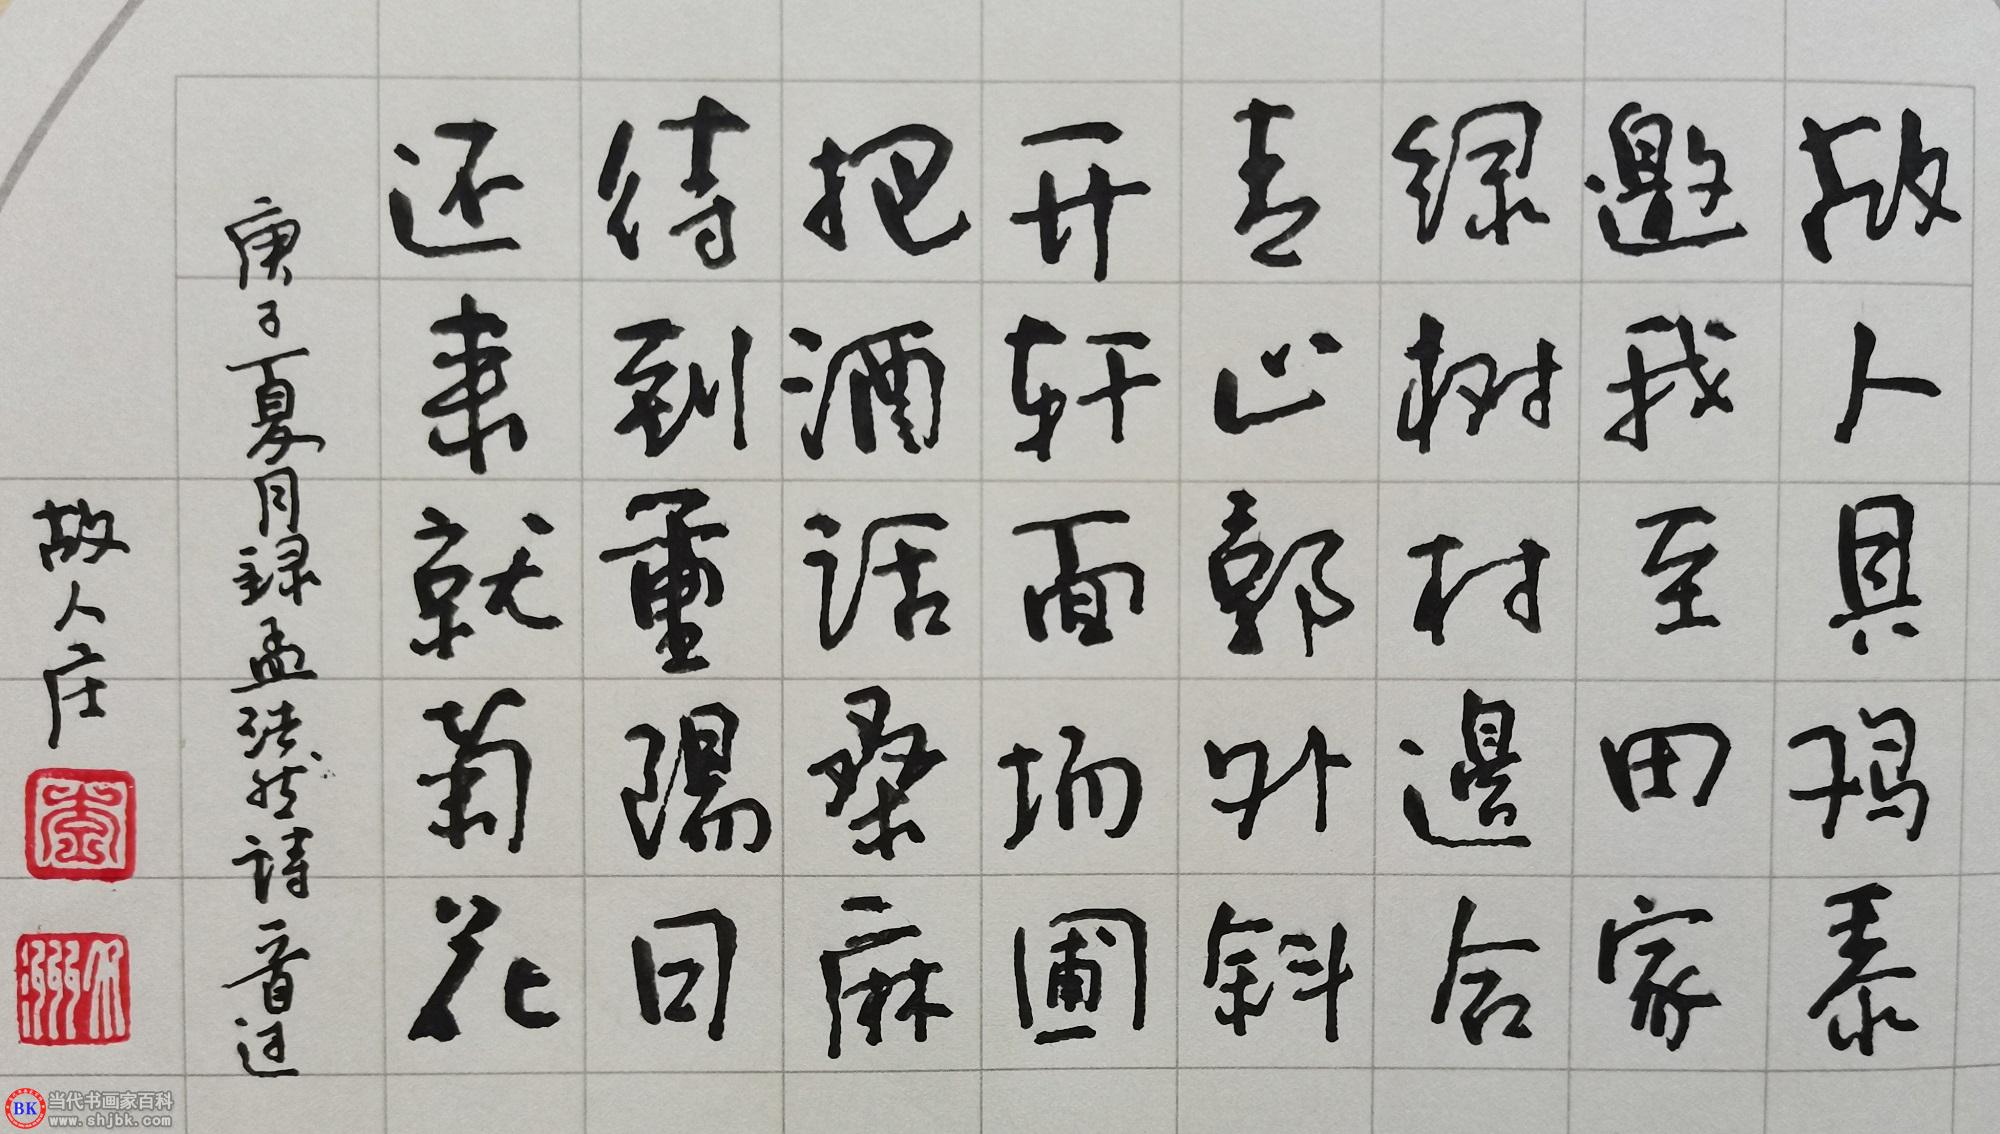 故人具鸡黍
邀我至田家
绿树村邊合
青山郭外斜
开轩面场圃
把酒话桑麻
待到重陽日
还来就菊花
庚子夏月録孟浩然詩音迅
故人庄
当代书画家百科
www.shjbk.com
BK